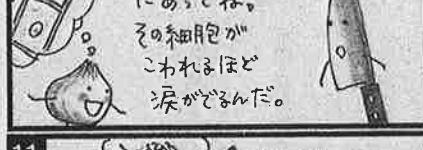 にあってね。
その細胞が
こわれるほど
涙がでるんだ。
11